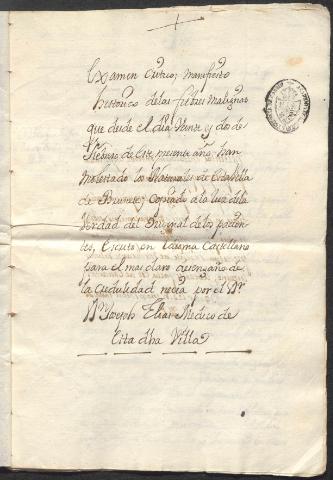 Examen Critico, manifiesto
historico de las fiebres malignas
que desde el dia Veinte y dos de
Febrero de este presente año han
molestado los Naturales de esta Villa
de Brunete; Copiado a la luz de la
Verdad del Original de los pacien
tes, Escrito en Idioma Castellano
para el mas claro desengaño de
la Credulidad necia por el Dr.
Dn. Joseph Elias Medico de
esta dha Villa